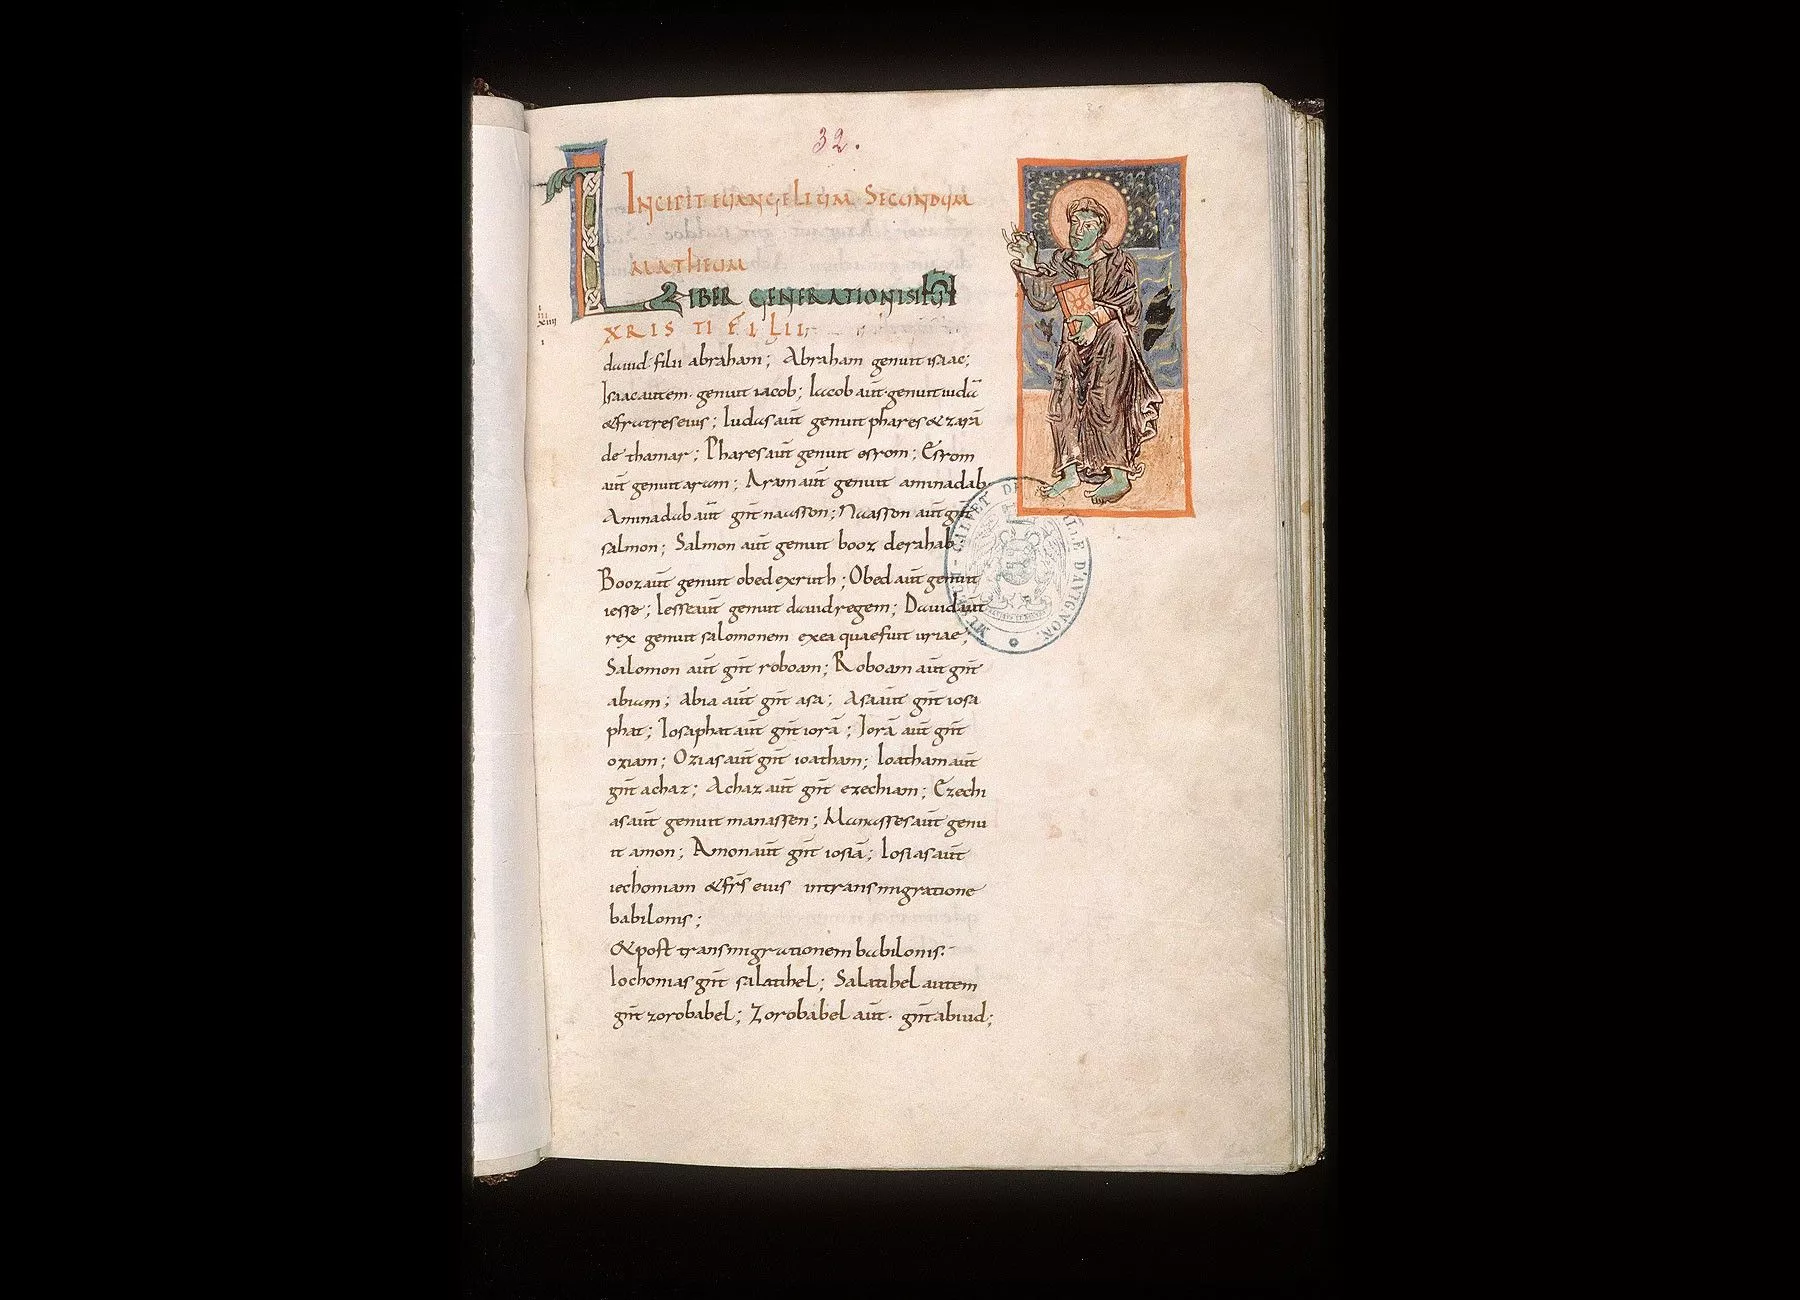 32.
INCIPIT EUANGELIUM SECUNDUM
MATHEUM
LIBER GENERATIONIS IHU
XRISTI FILII
dauid filii abraham; Abraham genuit isaac;
Isaac autem genuit iacob; Iacob aut̄ genuit iudā
& fratres eius; Iudas aut̄ genuit phares & zarā
de thamar; Phares aut̄ genuit esrom; Esrom
aut̄ genuit aram; Aram aut̄ genuit aminadab
Aminadab aut̄ gn̄it naasson; Naasson aut̄ gn̄it
salmon; Salmon aut̄ genuit booz de rahab
Booz aut̄ genuit obed ex ruth; Obed aut̄ genuit
iesse; Iesse aut̄ genuit dauid regem; Dauid aut̄
rex genuit salomonem ex ea quae fuit uriae;
Salomon aut̄ gn̄it roboam; Roboam aut̄ gn̄it
abiam; Abia aut̄ gn̄it asa; Asa aut̄ gn̄it iosa
phat; Iosaphat aut̄ gn̄it iorā; Iorā aut̄ gn̄it
oziam; Ozias aut̄ gn̄it ioatham; Ioatham aut̄
gn̄it achaz; Achaz aut̄ gn̄it ezechiam; Ezechi
as aut̄ genuit manassen; Manasses aut̄ genu
it amon; Amon aut̄ gn̄it iosiā; Iosias aut̄
iechoniam & fr̄s eius in transmigratione
babilonis;
& post transmigrationem babilonis.
Iochonias gn̄it salatihel; Salatihel autem
gn̄it zorobabel; Zorobabel aut̄ gn̄it abiud;
MUSEUM - CALVET DE LA VILLE D'AVIGNON.